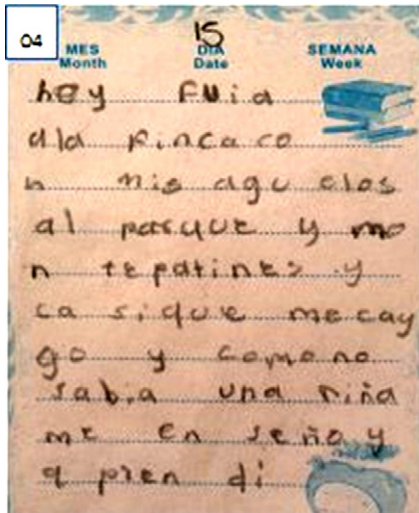 04
15
MES DIA SEMANA
Month Date Week
hoy fui a
ala finca co
n mis agu elos
al parque y mo
n te patines y
ca si que me cay
go y como no
sabia una niña
me en seño y
a pren di